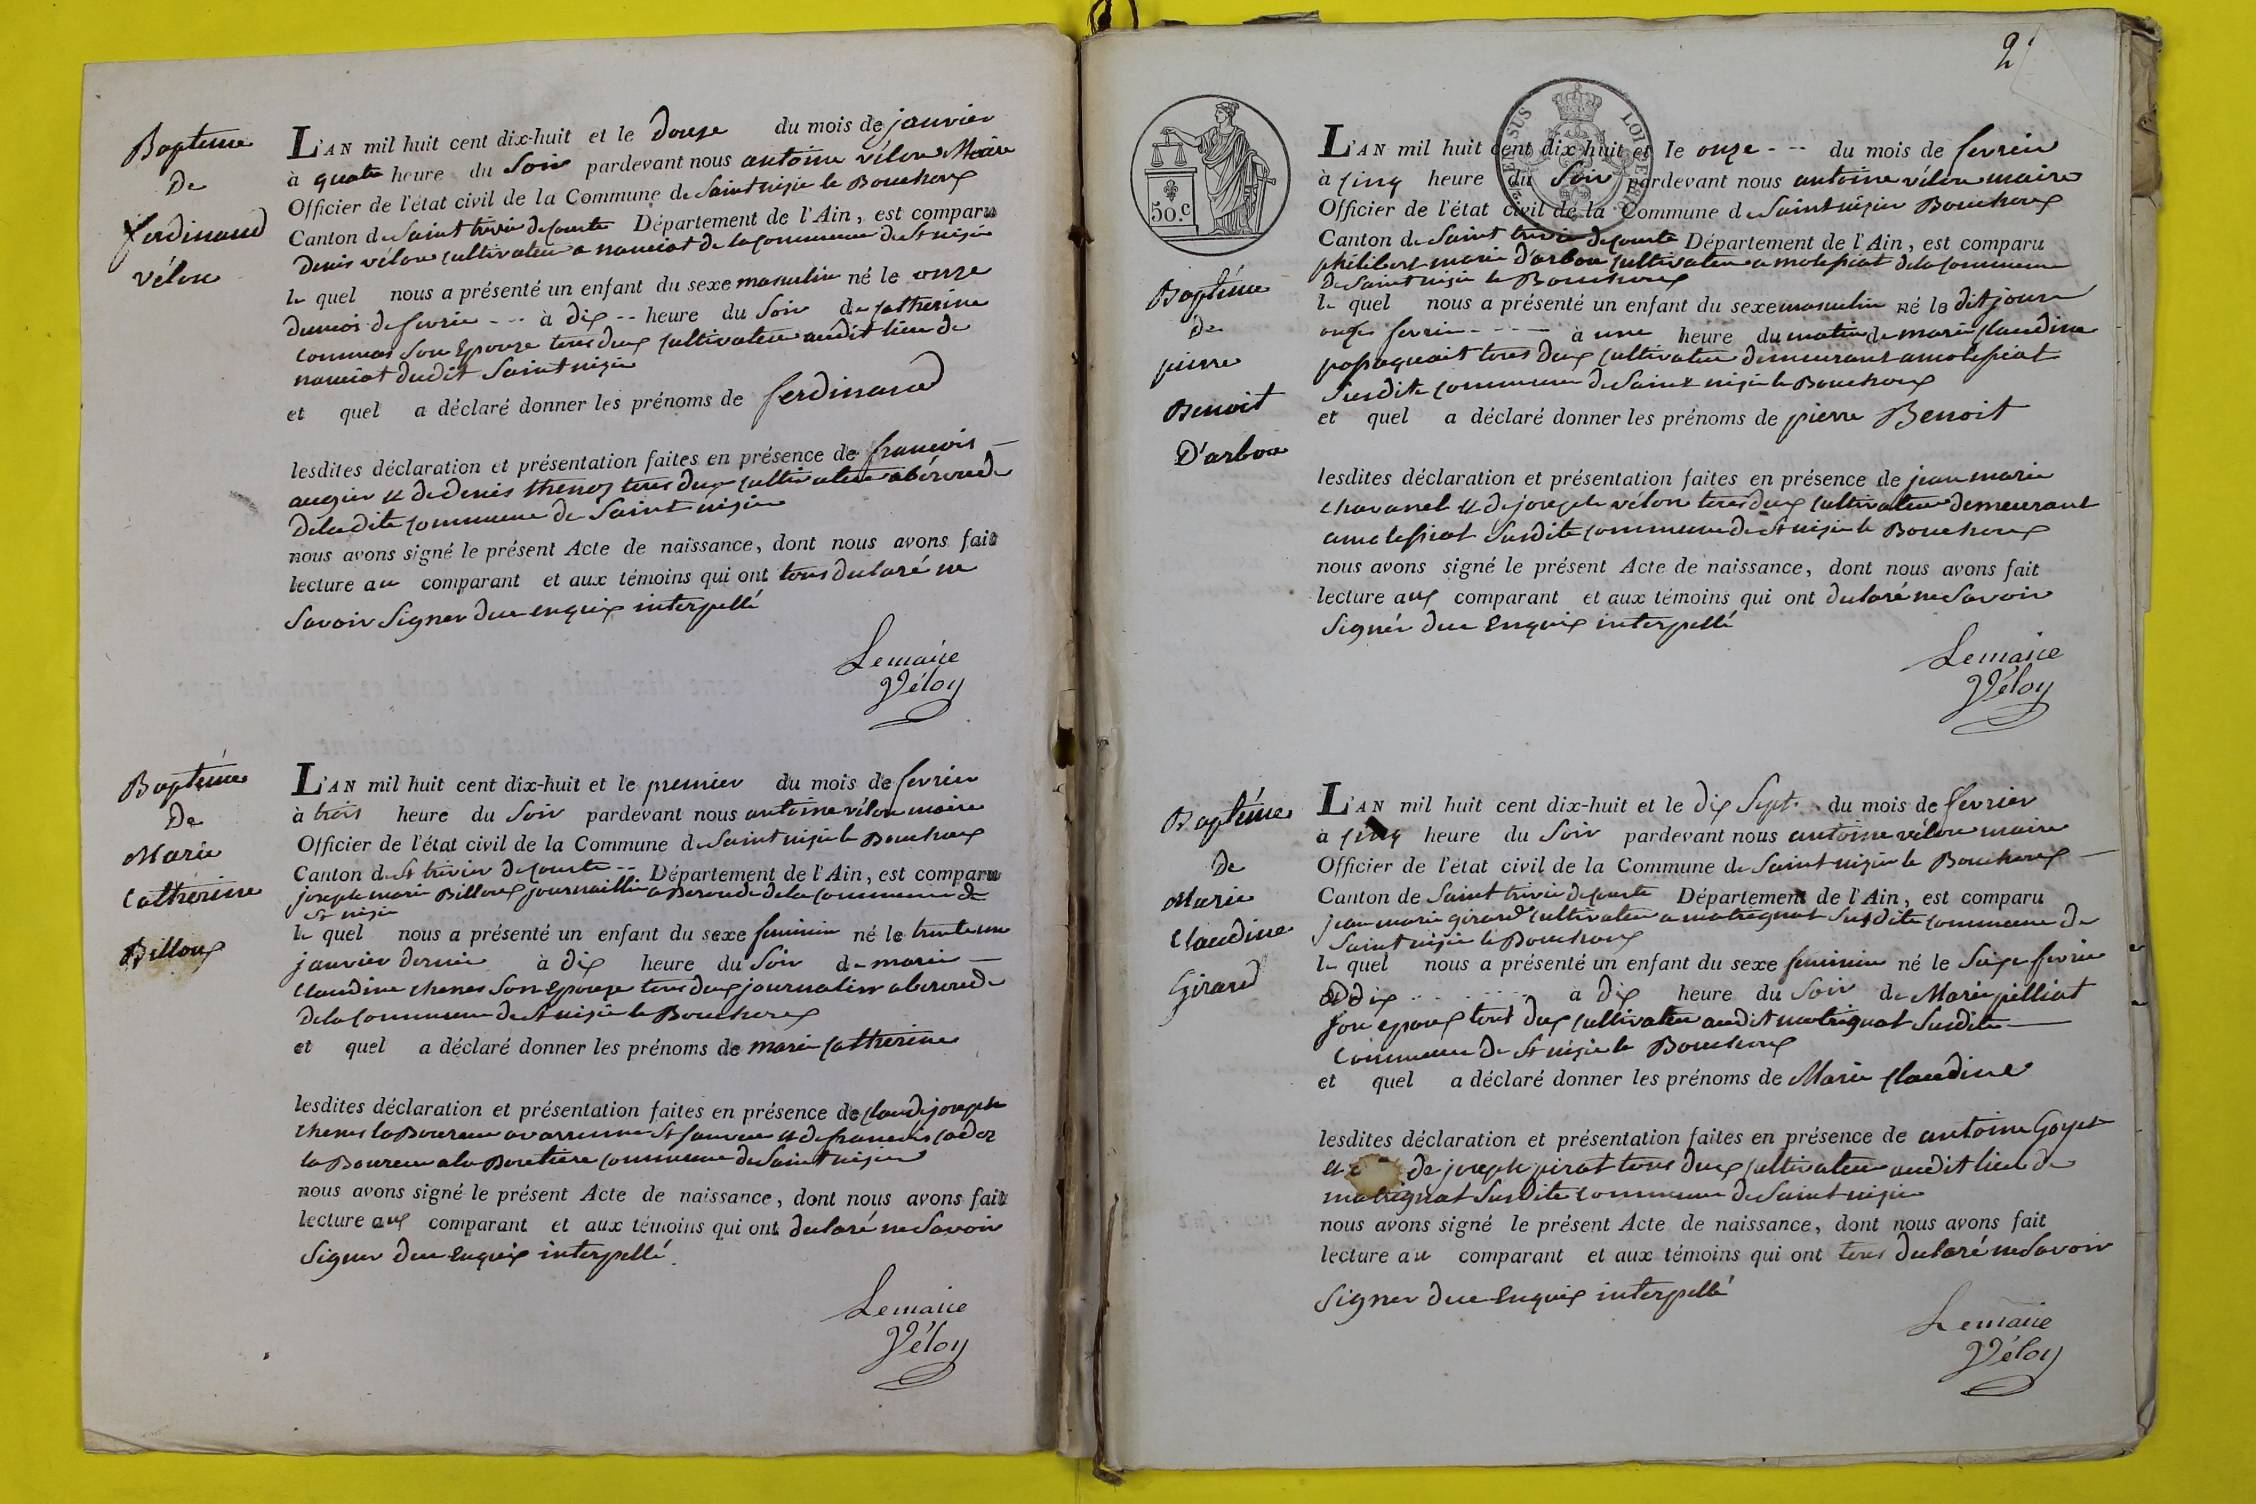 Bapteme
De
ferdinand
vélon
L'AN mil huit cent dix-huit et le douze du mois de janvier
à quatre heure du Soir pardevant nous antoine vélon Maire
Officier de l'état civil de la Commune de Saint nizie le Bouchoux
Canton de Saint trivie de courte Département de l'Ain, est comparu
denis vélon cultivateur a nanciat de la commune de St nizie
le quel nous a présenté un enfant du sexe masculin né le onze
du mois de fevrie à dix heure du Soir de catherine
son Epouze tous deux cultivateur audit lieu de
nanciat dudit Saint nizie
et quel a déclaré donner les prénoms de ferdinand
lesdites déclaration et présentation faites en présence de francois
augier et de denis thenoz tous deux cultivateur a béroude
de la dite commune de Saint nizie
nous avons signé le présent Acte de naissance, dont nous avons fait
lecture au comparant et aux témoins qui ont tous declaré ne
Savoir Signer due enquix interpellé
Lemaire
Véloy
Baptéme
De
Marie
Catherine
Billoux
L'AN mil huit cent dix-huit et le premier du mois de fevrier
à trois heure du Soir pardevant nous antoine vélon maire
Officier de l'état civil de la Commune de Saint nizie le Bouchoux
Canton de St trivier de courte Département de l'Ain, est comparu
joseph marie Billoux journaillie a Beroude de la commune de
St nizie
le quel nous a présenté un enfant du sexe feminin né le trente un
janvier dernie à dix heure du Soir de marie
claudine chenes Son Epouze tous deux journalier a beroude
de la commune de St nizie le Bouchoux
et quel a déclaré donner les prénoms de marie catherine
lesdites déclaration et présentation faites en présence de claude joseph
chenes laBoureur St et de francois cadoz
la Boureur a la Boutiere commune de Saint nizier
nous avons signé le présent Acte de naissance, dont nous avons fait
lecture aux comparant et aux témoins qui ont declaré ne Savoir
Signer due enquix interpellé
Lemaire
Véloy
2
50.c
Baptéme
de
pierre
Benoit
D'arbon
L'AN mil huit cent dix-huit et le onze du mois de fevrier
à cinq heure du Soir pardevant nous antoine vélon maire
Officier de l'état civil de la Commune de Saint nizier Bouchoux
Canton de Saint trivie de courte Département de l'Ain, est comparu
philibert marie D'arbon cultivateur a molessiat de la commune
de Saint nizie le Bouchoux
le quel nous a présenté un enfant du sexe masculin né le dit jour
onze fevrie à une heure du matin de marie claudine
tous deux cultivateur demeurant a molessiat
Susdite commune de Saint nizie le Bouchoux
et quel a déclaré donner les prénoms de pierre Benoit
lesdites déclaration et présentation faites en présence de jean marie
chavanel et de joseph vélon tous deux cultivateur demeurant
a molessiat Susdite commune de St nizie le Bouchoux
nous avons signé le présent Acte de naissance, dont nous avons fait
lecture aux comparant et aux témoins qui ont declaré ne Savoir
Signér due Enquix interpellé
Lemaire
Véloy
Baptéme
De
Marie
Claudine
Girard
L'AN mil huit cent dix-huit et le dix Sept du mois de fevrier
à cinq heure du Soir pardevant nous antoine vélon maire
Officier de l'état civil de la Commune de Saint nizie le Bouchoux
Canton de Saint trivie de courte Département de l'Ain, est comparu
jean marie girard cultivateur a matrignat Susdite commune de
Saint nizie le Bouchoux
le quel nous a présenté un enfant du sexe feminin né le Seize fevrie
à dix heure du Soir de Marie pilliat
Son epoux tout deux cultivateur audit matrignat Susdite
Commune de St nizie le Bouchoux
et quel a déclaré donner les prénoms de Marie Claudine
lesdites déclaration et présentation faites en présence de antoine Goyet
et de joseph pirat tous deux cultivateur audit lieu de
matrignat Susdite commune de Saint nizie
nous avons signé le présent Acte de naissance, dont nous avons fait
lecture au comparant et aux témoins qui ont tous declaré ne Savoir
Signer due Enquix interpellé
Lemaire
Véloy